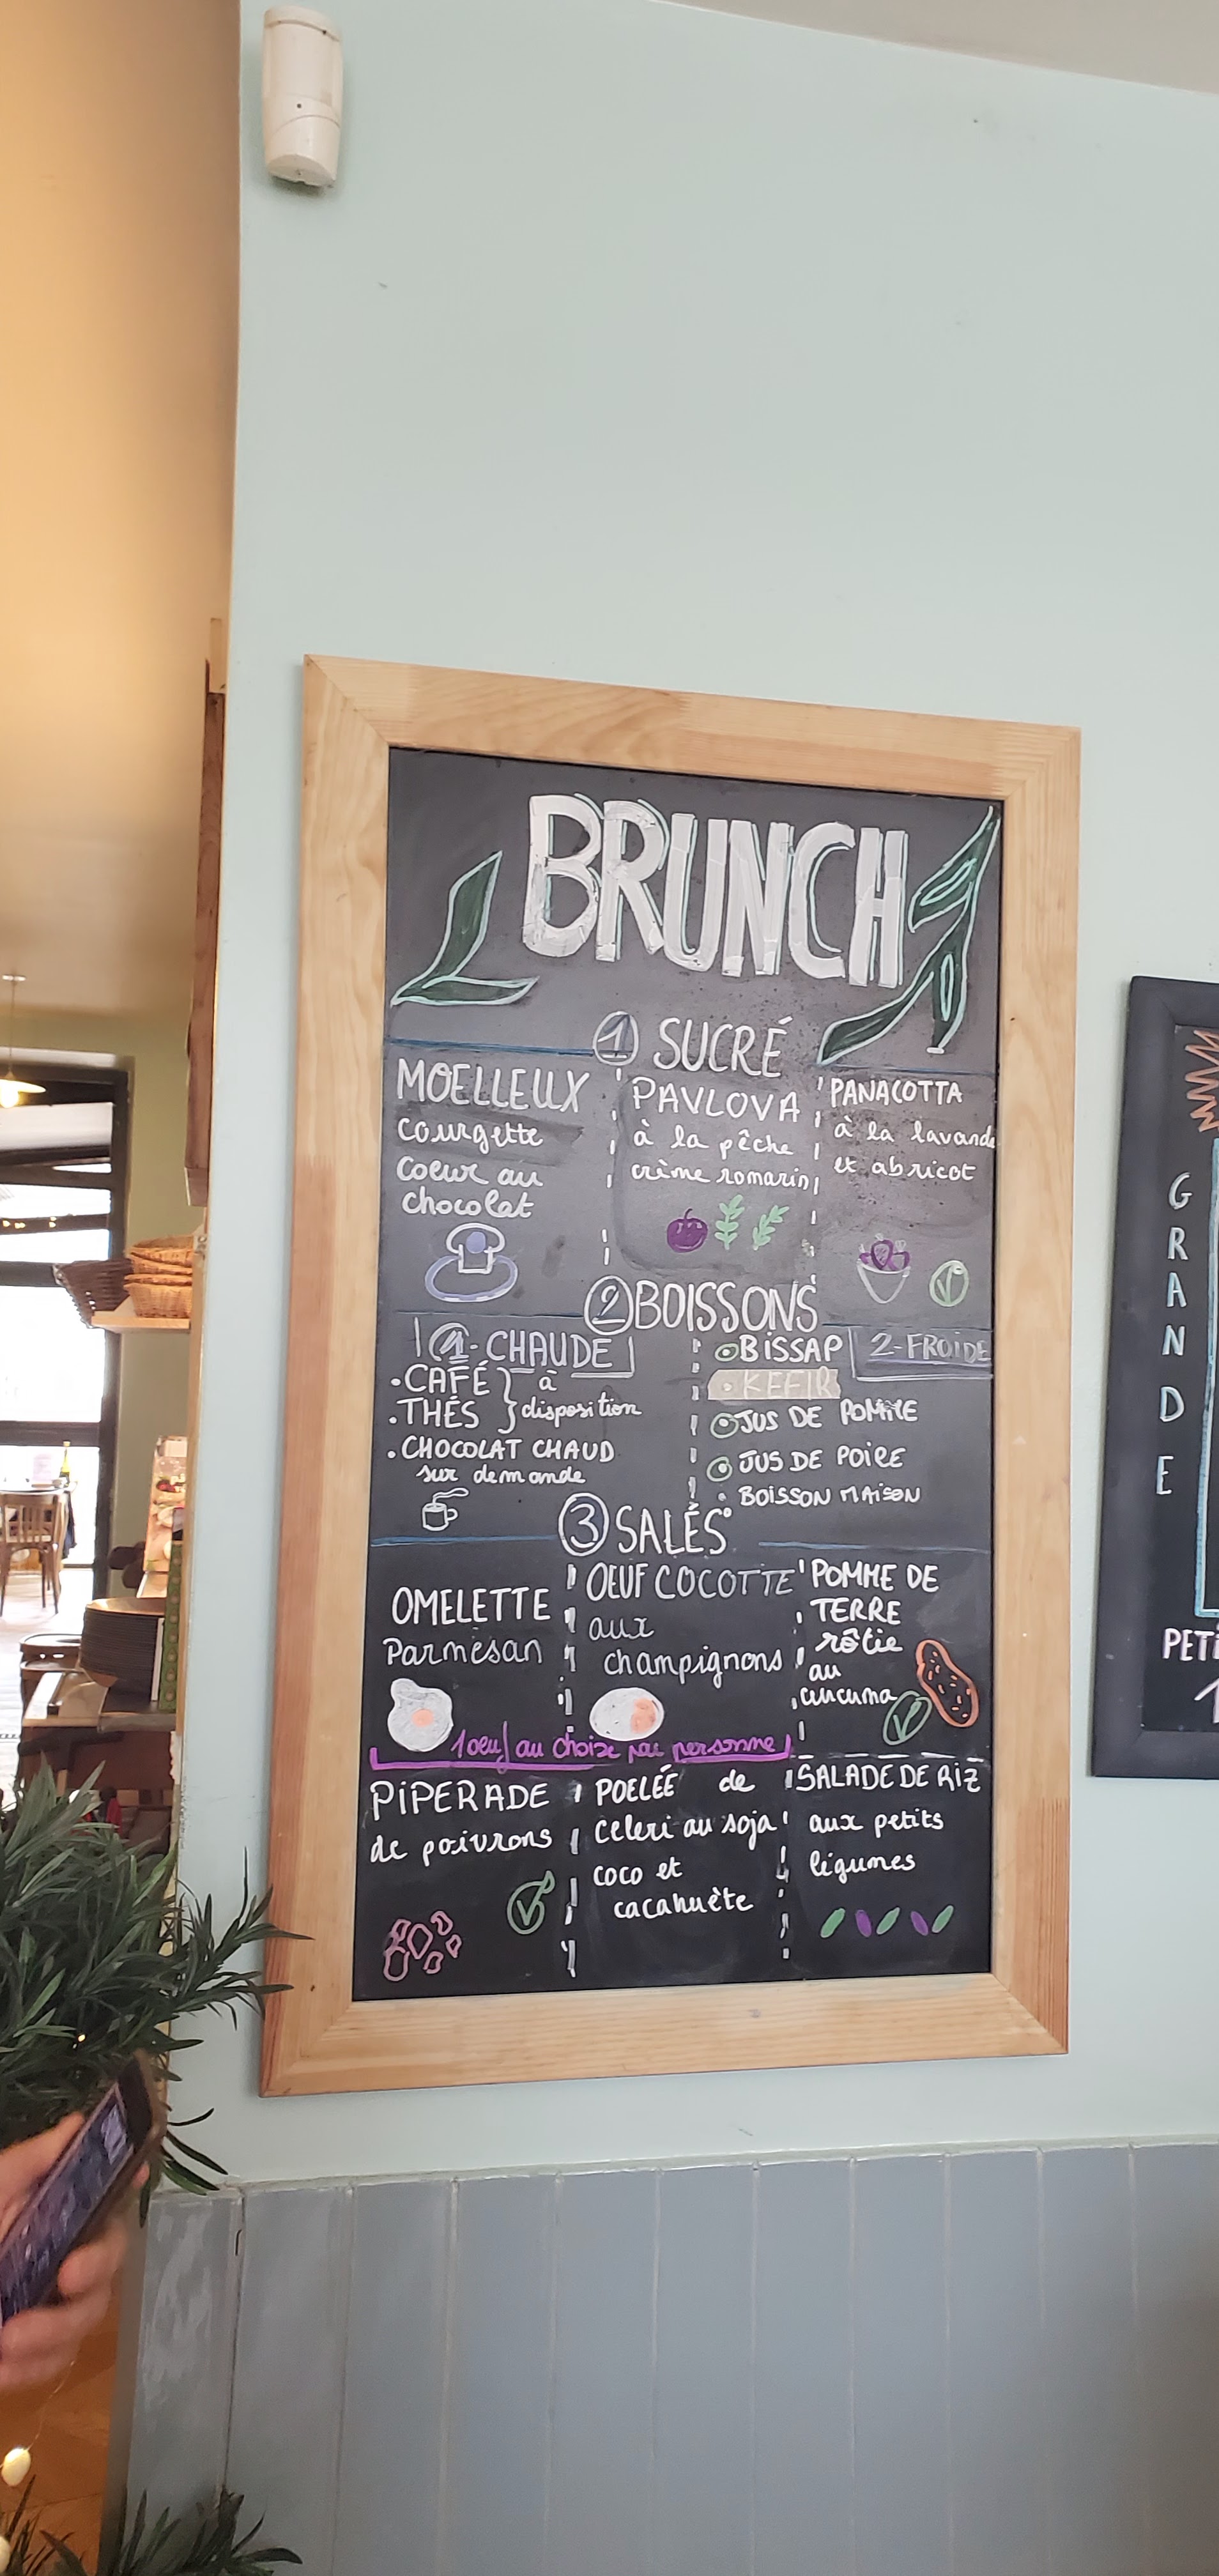 BRUNCH
1 SUCRÉ
MOELLEUX
courgette
coeur au
chocolat
PAVLOVA
à la pêche
crème romarin
PANACOTTA
à la lavande
et abricot
V
2 BOISSONS
1- CHAUDE
• CAFÉ
• THÉS
à
disposition
• CHOCOLAT CHAUD
sur demande
2-FROIDE
BISSAP
KEFIR
JUS DE POMME
JUS DE POIRE
BOISSON MAISON
3 SALÉS
OMELETTE
Parmesan
OEUF COCOTTE
aux
champignons
1 oeuf au choix par personne
POMME DE
TERRE
rôtie
au
curcuma
V
PIPERADE
de poivrons
V
POELÉE de
celeri au soja
coco et
cacahuète
SALADE DE RIZ
aux petits
légumes
GRANDE
PETI
1